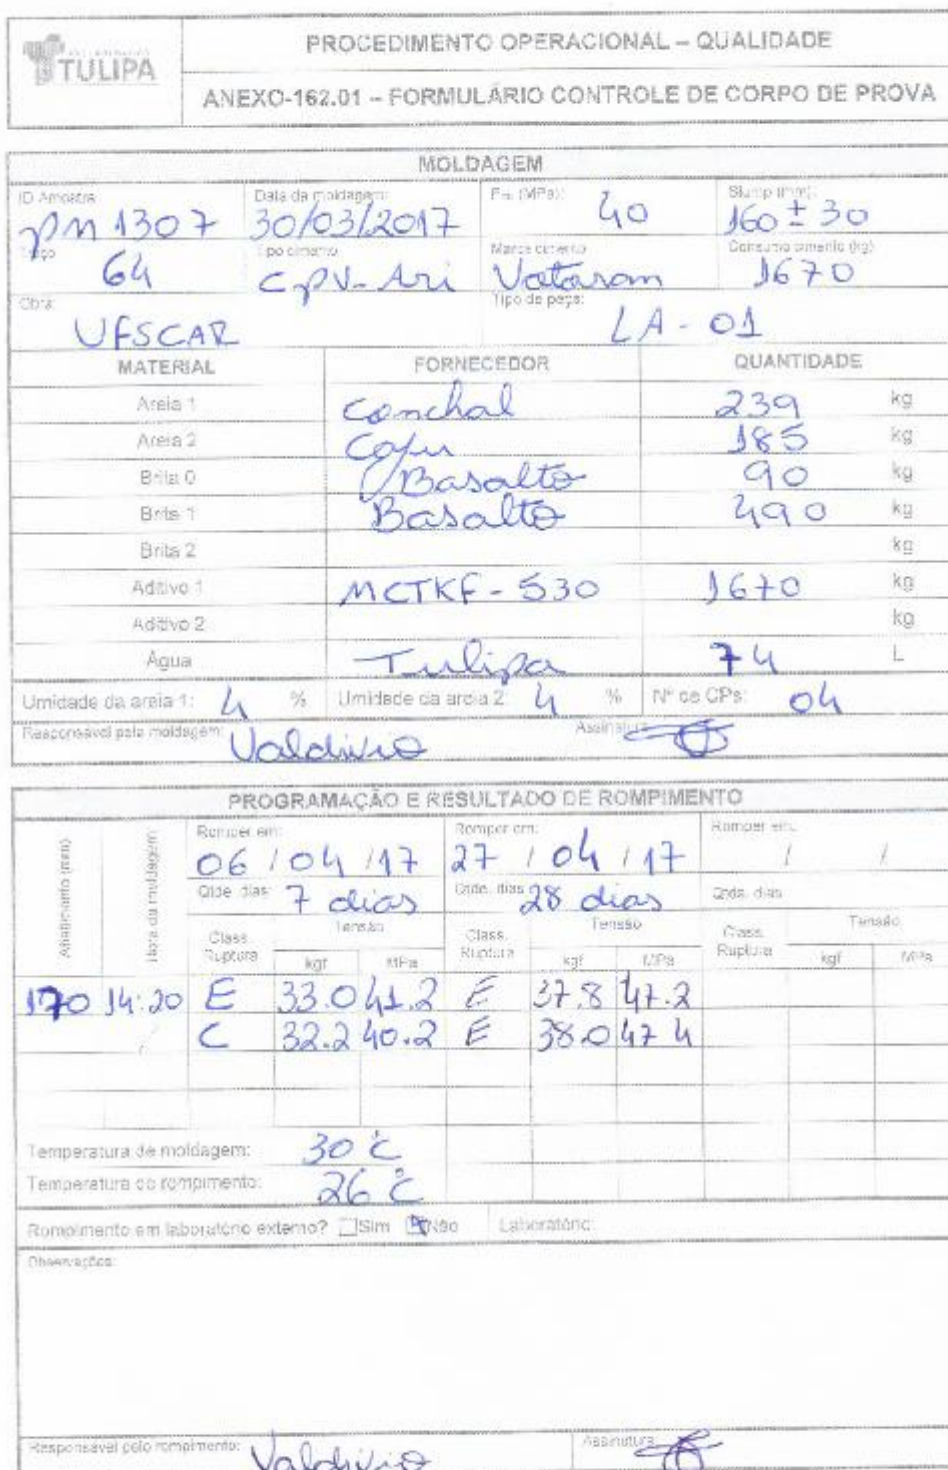 TULIPA
PROCEDIMENTO OPERACIONAL – QUALIDADE
ANEXO-162.01 – FORMULÁRIO CONTROLE DE CORPO DE PROVA
MOLDAGEM
ID Amostra: Data da moldagem: Fck (MPa): Slump (mm):
pm 1307 30/03/2017 40 160 ± 30
Traço Tipo cimento Marca cimento Consumo cimento (kg):
64 CpV-Ari 1670
Obra: Tipo de peça:
UFSCAR LA-01
MATERIAL FORNECEDOR QUANTIDADE
Areia 1 Conchal 239 kg
Areia 2 185 kg
Brita 0 Basalto 90 kg
Brita 1 Basalto 490 kg
Brita 2 kg
Aditivo 1 MCTKF-530 1670 kg
Aditivo 2 kg
Água Tulipa 74 L
Umidade da areia 1: 4 % Umidade da areia 2: 4 % Nº de CPs: 04
Responsável pela moldagem: Valdivio Assinatura:
PROGRAMAÇÃO E RESULTADO DE ROMPIMENTO
Abatimento (mm) Hora da moldagem Romper em: Romper em: Romper em:
06 / 04 / 17 27 / 04 / 17 / /
Qtde. dias: 7 dias Qtde. dias 28 dias Qtde. dias
Class. Ruptura Tensão Class. Ruptura Tensão Class. Ruptura Tensão
kgf MPa kgf MPa kgf MPa
170 14:20 E 33.0 41.2 E 37.8 47.2
C 32.2 40.2 E 38.0 47 4
Temperatura de moldagem: 30 °C
Temperatura do rompimento: 26 °C
Rompimento em laboratório externo? Sim Não Laboratório:
Observações:
Responsável pelo rompimento: Valdivio Assinatura: